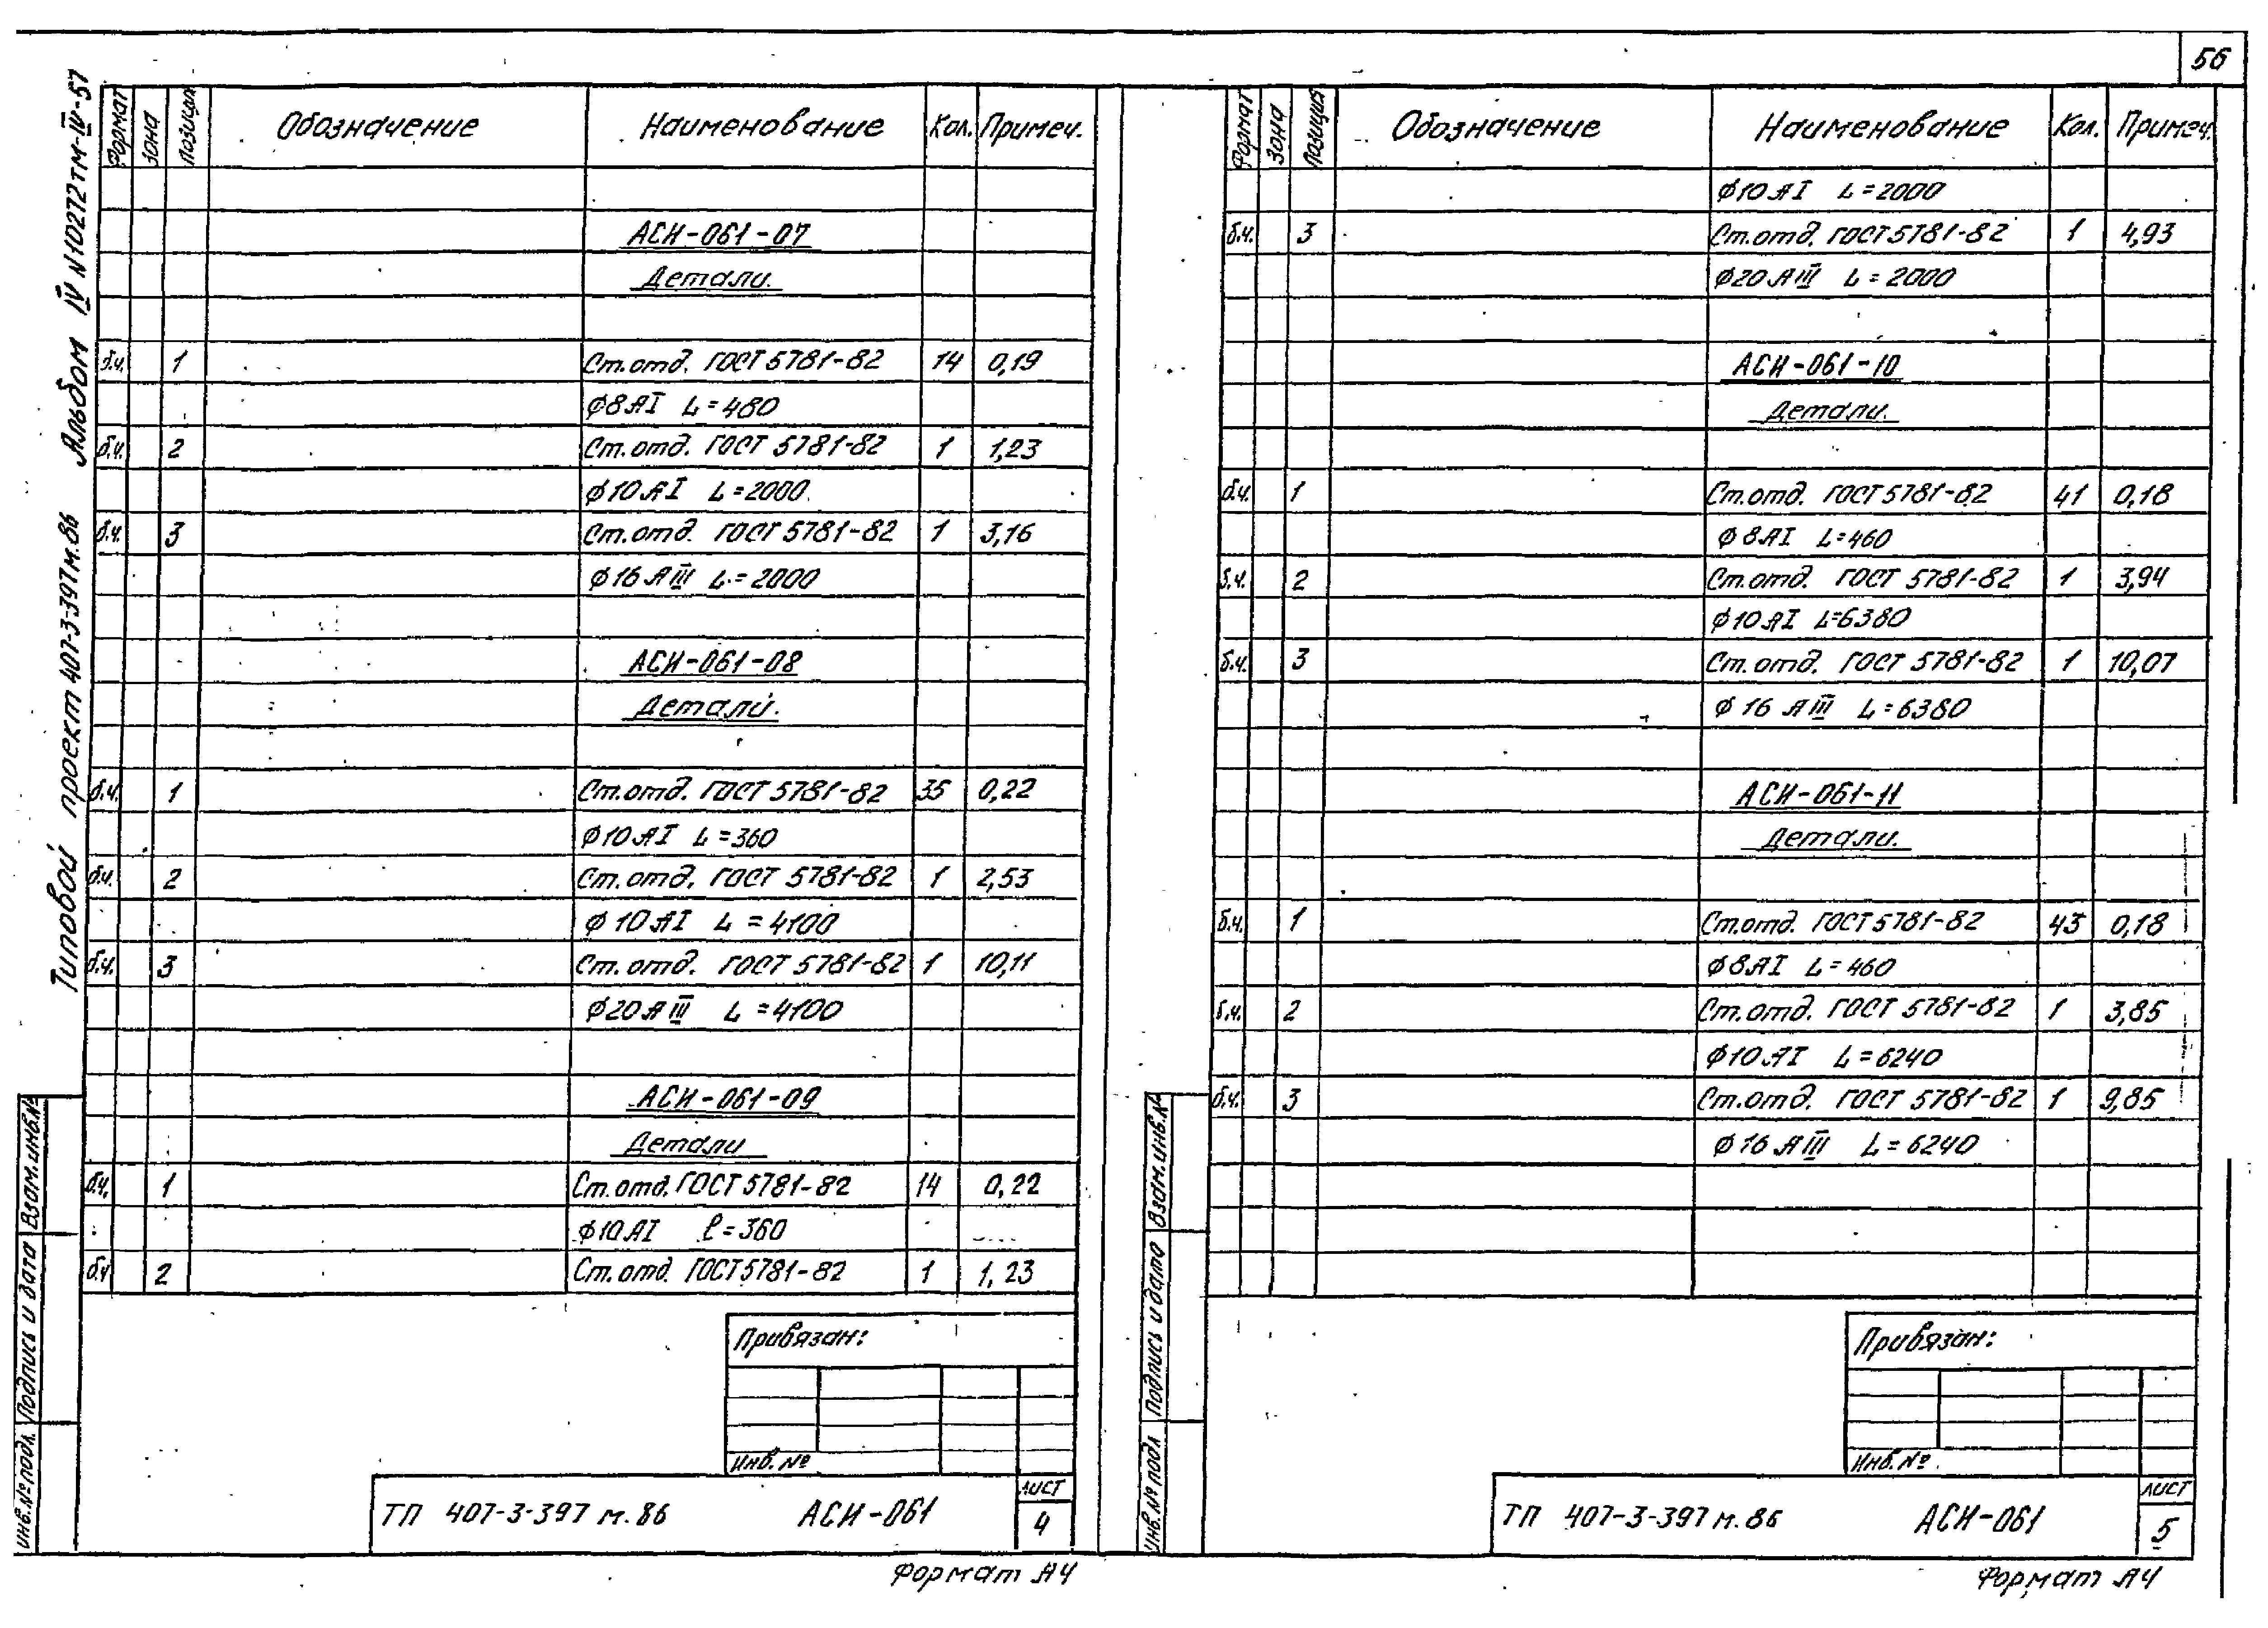 56
Типовой проект 407-3-397м.86 Альбом IV N10272тм-IV-57
Формат Зона Позиция Обозначение Наименование Кол. Примеч.
АСИ-061-07
Детали.
б.ч. 1 Ст.отд. ГОСТ 5781-82 14 0,19
φ8АI L=480
б.ч. 2 Ст.отд. ГОСТ 5781-82 1 1,23
φ10АI L=2000
б.ч. 3 Ст.отд. ГОСТ 5781-82 1 3,16
φ16АIII L=2000
АСИ-061-08
Детали.
б.ч. 1 Ст.отд. ГОСТ 5781-82 35 0,22
φ10АI L=360
б.ч. 2 Ст.отд. ГОСТ 5781-82 1 2,53
φ10АI L=4100
б.ч. 3 Ст.отд. ГОСТ 5781-82 1 10,11
φ20АIII L=4100
АСИ-061-09
Детали
б.ч. 1 Ст.отд. ГОСТ 5781-82 14 0,22
φ10АI ℓ=360
б.ч 2 Ст.отд. ГОСТ 5781-82 1 1,23
Привязан:
Инв. №
ТП 407-3-397 м.86 АСИ-061
лист
4
Формат А4
Инв.№подл. Подпись и дата Взам.инв.№
Формат Зона Позиция Обозначение Наименование Кол. Примеч.
φ10АI L=2000
б.ч. 3 Ст.отд. ГОСТ 5781-82 1 4,93
φ20АIII L=2000
АСИ-061-10
Детали.
б.ч. 1 Ст.отд. ГОСТ 5781-82 41 0,18
φ8АI L=460
б.ч. 2 Ст.отд. ГОСТ 5781-82 1 3,94
φ10АI L=6380
б.ч. 3 Ст.отд. ГОСТ 5781-82 1 10,07
φ16 АIII L=6380
АСИ-061-11
Детали.
б.ч. 1 Ст.отд. ГОСТ 5781-82 43 0,18
φ8АI L=460
б.ч. 2 Ст.отд. ГОСТ 5781-82 1 3,85
φ10АI L=6240
б.ч. 3 Ст.отд. ГОСТ 5781-82 1 9,85
φ16АIII L=6240
Привязан:
Инв. №
ТП 407-3-397 м.86 АСИ-061
лист
5
Формат А4
Инв.№подл Подпись и дата Взам.инв.№